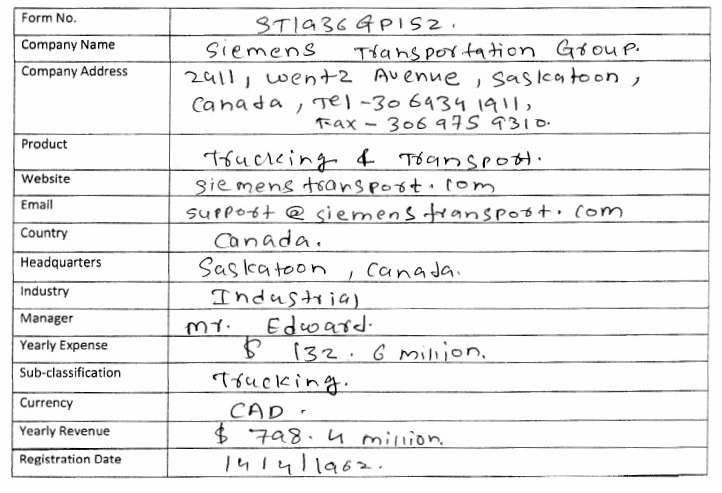 Form No. STI936GP1S2.
Company Name Siemens Transportation Group.
Company Address 2911, Wentz Avenue, Saskatoon,
Canada, Tel -306934 1911,
Fax - 306 975 9310.
Product Trucking & Transport.
Website siemenstransport.com
Email support@siemenstransport.com
Country Canada.
Headquarters Saskatoon, Canada.
Industry Industrial
Manager mr. Edward.
Yearly Expense $ 132.6 million.
Sub-classification Trucking.
Currency CAD.
Yearly Revenue $ 798.4 million.
Registration Date 14/4/1962.